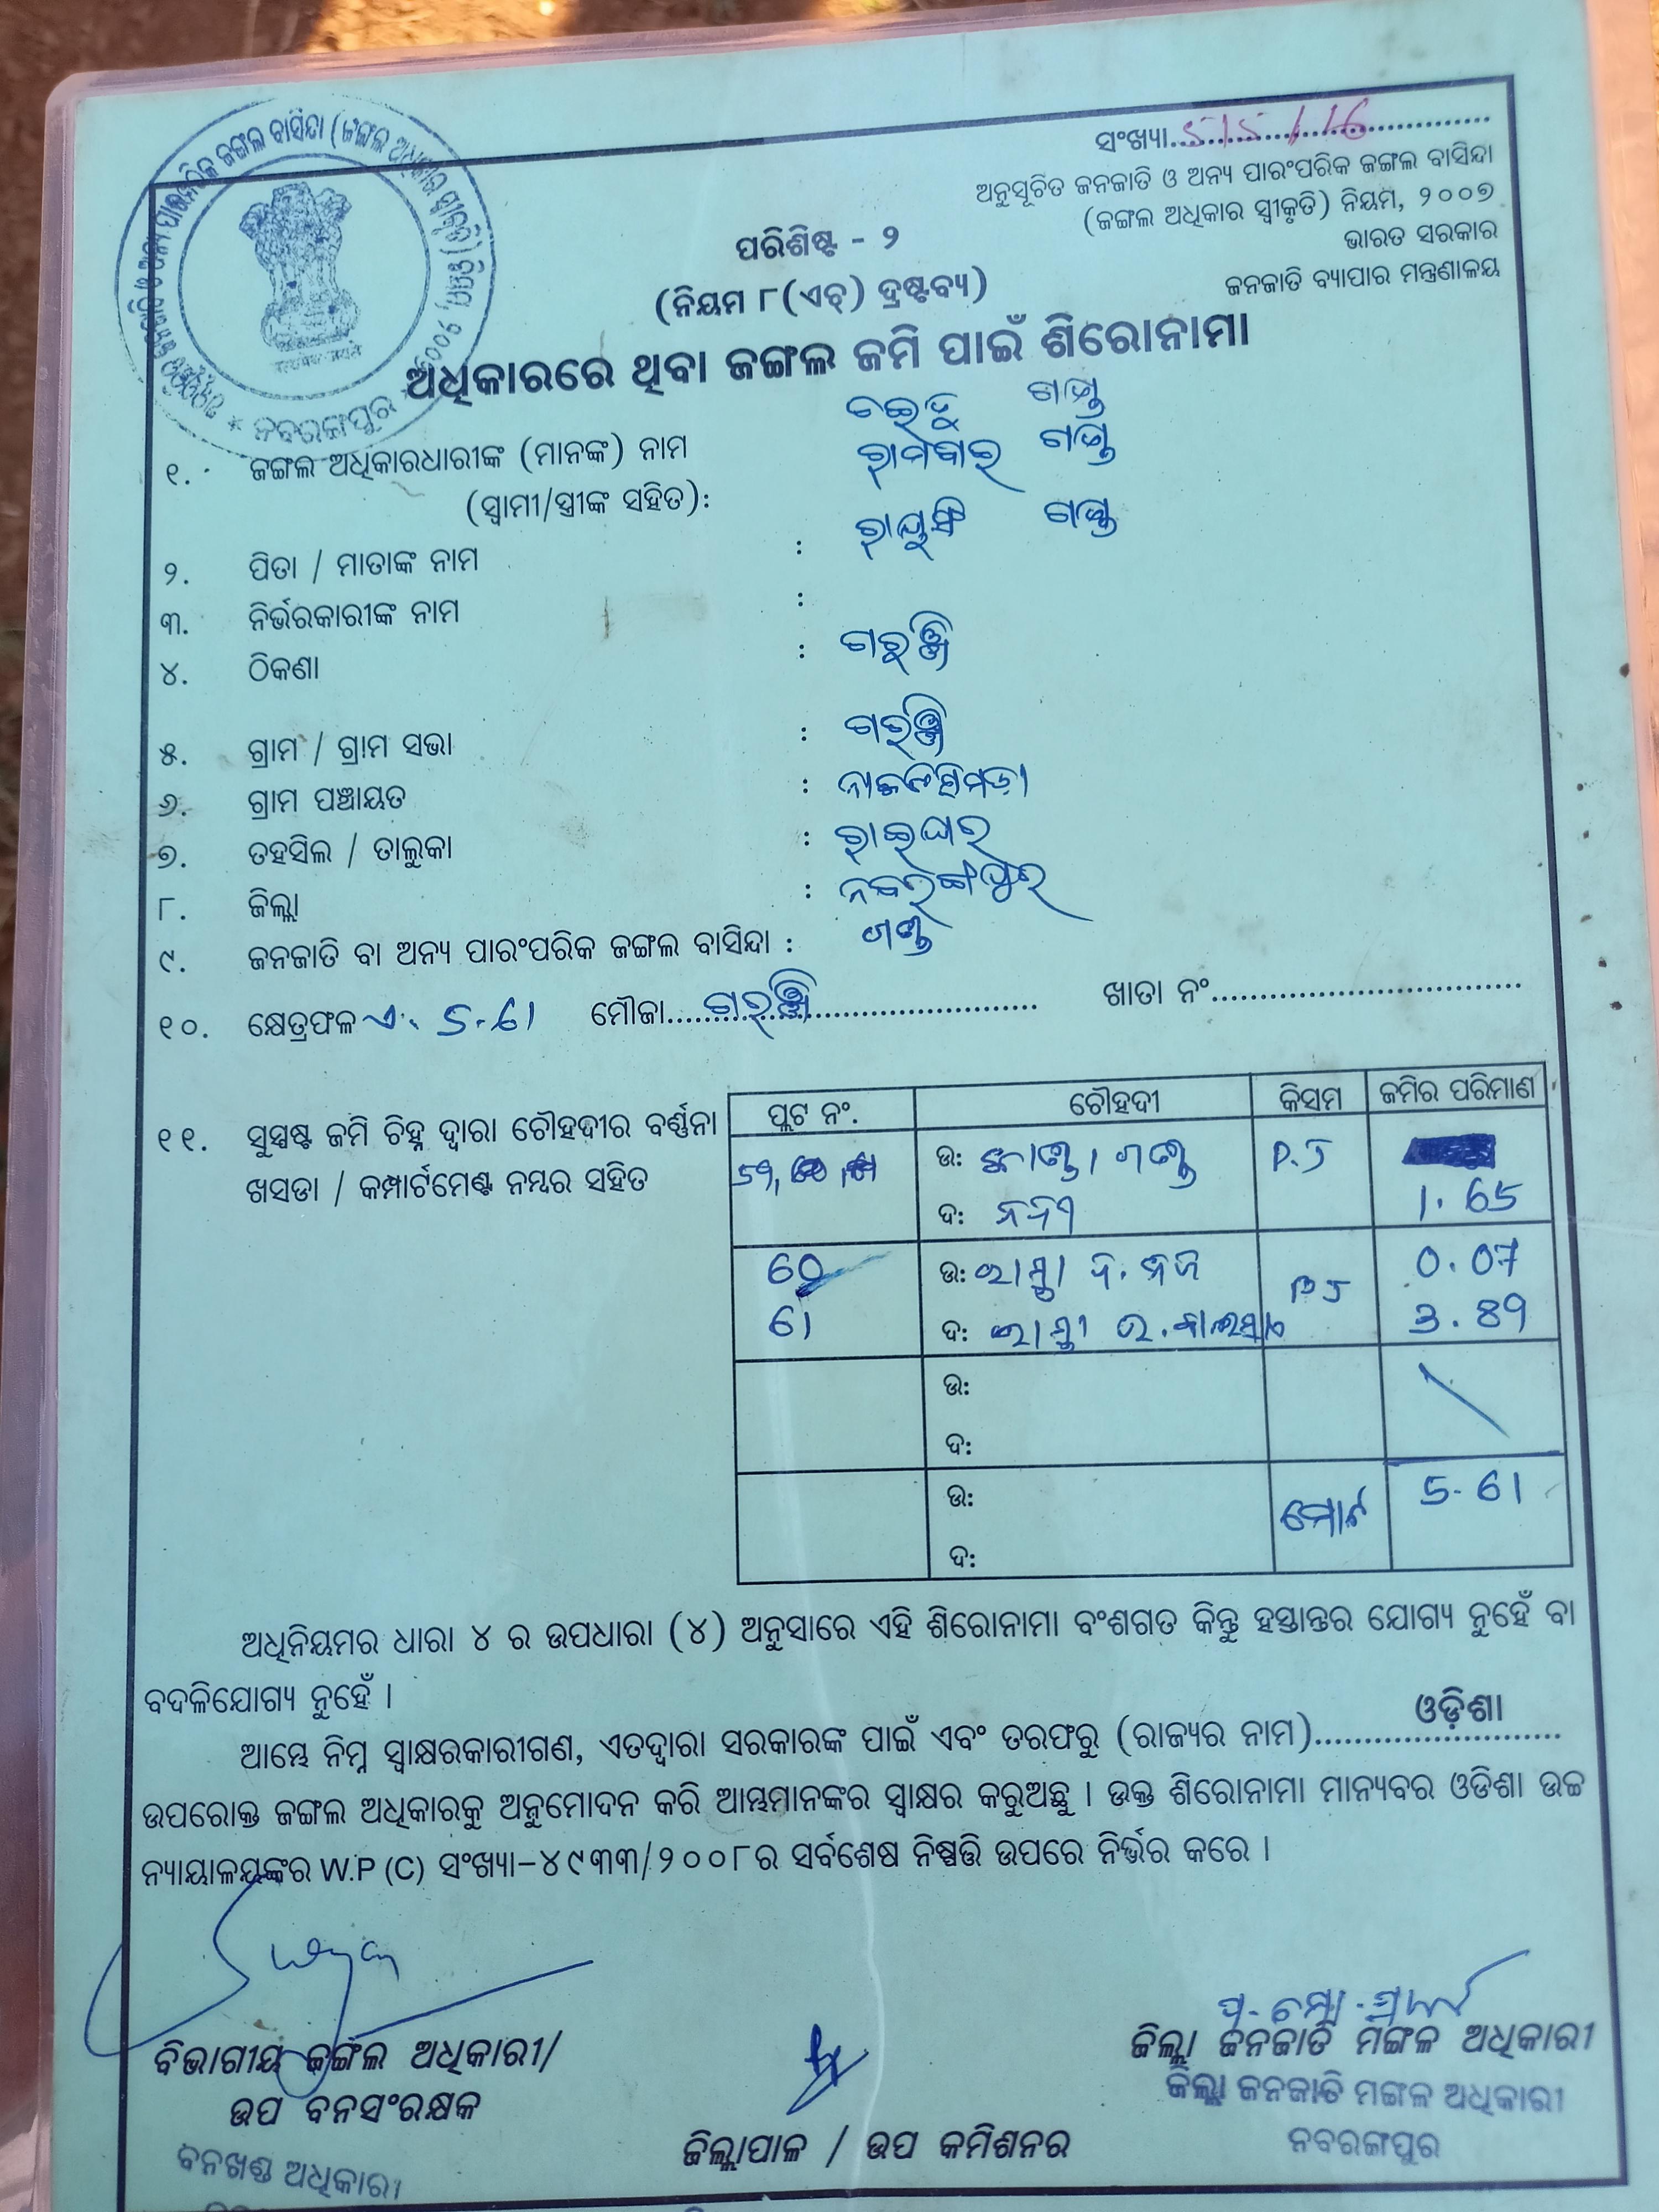 ସଂଖ୍ୟା..515/16
ଅନୁସୂଚିତ ଜନଜାତି ଓ ଅନ୍ୟ ପାରଂପରିକ ଜଙ୍ଗଲ ବାସିନ୍ଦା
(ଜଙ୍ଗଲ ଅଧିକାର ସ୍ୱୀକୃତି) ନିୟମ, ୨୦୦୭
ଭାରତ ସରକାର
ଜନଜାତି ବ୍ୟାପାର ମନ୍ତ୍ରଣାଳୟ
ନବରଙ୍ଗପୁର
ପରିଶିଷ୍ଟ - ୨
(ନିୟମ ୮(ଏଚ୍) ଦ୍ରଷ୍ଟବ୍ୟ)
ଅଧିକାରରେ ଥିବା ଜଙ୍ଗଲ ଜମି ପାଇଁ ଶିରୋନାମା
୧. ଜଙ୍ଗଲ ଅଧିକାରଧାରୀଙ୍କ (ମାନଙ୍କ) ନାମ
(ସ୍ୱାମୀ/ସ୍ତ୍ରୀଙ୍କ ସହିତ):
୨. ପିତା / ମାତାଙ୍କ ନାମ :
୩. ନିର୍ଭରକାରୀଙ୍କ ନାମ :
୪. ଠିକଣା :
୫. ଗ୍ରାମ / ଗ୍ରାମ ସଭା :
୬. ଗ୍ରାମ ପଞ୍ଚାୟତ :
୭. ତହସିଲ / ତାଲୁକା : ରାଇଘର
୮. ଜିଲ୍ଲା : ନବରଙ୍ଗପୁର
୯. ଜନଜାତି ବା ଅନ୍ୟ ପାରଂପରିକ ଜଙ୍ଗଲ ବାସିନ୍ଦା : ଗଣ୍ଡ
୧୦. କ୍ଷେତ୍ରଫଳ ଏ. 5.61 ମୌଜା.......... ଖାତା ନଂ..........
୧୧. ସୁସ୍ପଷ୍ଟ ଜମି ଚିହ୍ନ ଦ୍ୱାରା ଚୌହଦୀର ବର୍ଣ୍ଣନା
ଖସଡା / କମ୍ପାର୍ଟମେଣ୍ଟ ନମ୍ବର ସହିତ
ପ୍ଲଟ ନଂ. ଚୌହଦୀ କିସମ ଜମିର ପରିମାଣ
ଉ: P.J
ଦ: ନଦୀ 1.65
60 ଉ: ରାସ୍ତା 0.07
61 ଦ: ରାସ୍ତା 3.89
ଉ:
ଦ:
ଉ: ମୋଟ 5.61
ଦ:
ଅଧିନିୟମର ଧାରା ୪ ର ଉପଧାରା (୪) ଅନୁସାରେ ଏହି ଶିରୋନାମା ବଂଶଗତ କିନ୍ତୁ ହସ୍ତାନ୍ତର ଯୋଗ୍ୟ ନୁହେଁ ବା
ବଦଳିଯୋଗ୍ୟ ନୁହେଁ ।
ଆମ୍ଭେ ନିମ୍ନ ସ୍ୱାକ୍ଷରକାରୀଗଣ, ଏତଦ୍ୱାରା ସରକାରଙ୍କ ପାଇଁ ଏବଂ ତରଫରୁ (ରାଜ୍ୟର ନାମ)..........ଓଡ଼ିଶା
ଉପରୋକ୍ତ ଜଙ୍ଗଲ ଅଧିକାରକୁ ଅନୁମୋଦନ କରି ଆମ୍ଭମାନଙ୍କର ସ୍ୱାକ୍ଷର କରୁଅଛୁ । ଉକ୍ତ ଶିରୋନାମା ମାନ୍ୟବର ଓଡିଶା ଉଚ୍ଚ
ନ୍ୟାୟାଳୟଙ୍କର W.P (C) ସଂଖ୍ୟା-୪୯୩୩/୨୦୦୮ର ସର୍ବଶେଷ ନିଷ୍ପତ୍ତି ଉପରେ ନିର୍ଭର କରେ ।
ବିଭାଗୀୟ ଜଙ୍ଗଲ ଅଧିକାରୀ/
ଉପ ବନସଂରକ୍ଷକ
ବନଖଣ୍ଡ ଅଧିକାରୀ
ଜିଲ୍ଲାପାଳ / ଉପ କମିଶନର
ଜିଲ୍ଲା ଜନଜାତି ମଙ୍ଗଳ ଅଧିକାରୀ
ଜିଲ୍ଲା ଜନଜାତି ମଙ୍ଗଳ ଅଧିକାରୀ
ନବରଙ୍ଗପୁର